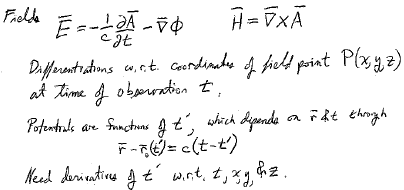 Fields E̅ = -1/c ∂A̅/∂t - ∇̅Φ H̅ = ∇̅×A̅
Differentiations w.r.t. coordinates of field point P(x,y,z)
at time of observation t.
Potentials are functions of t', which depends on r̅ & t through
r̅ - r̅₀(t') = c(t-t')
Need derivatives of t' w.r.t. t, x, y, & z.